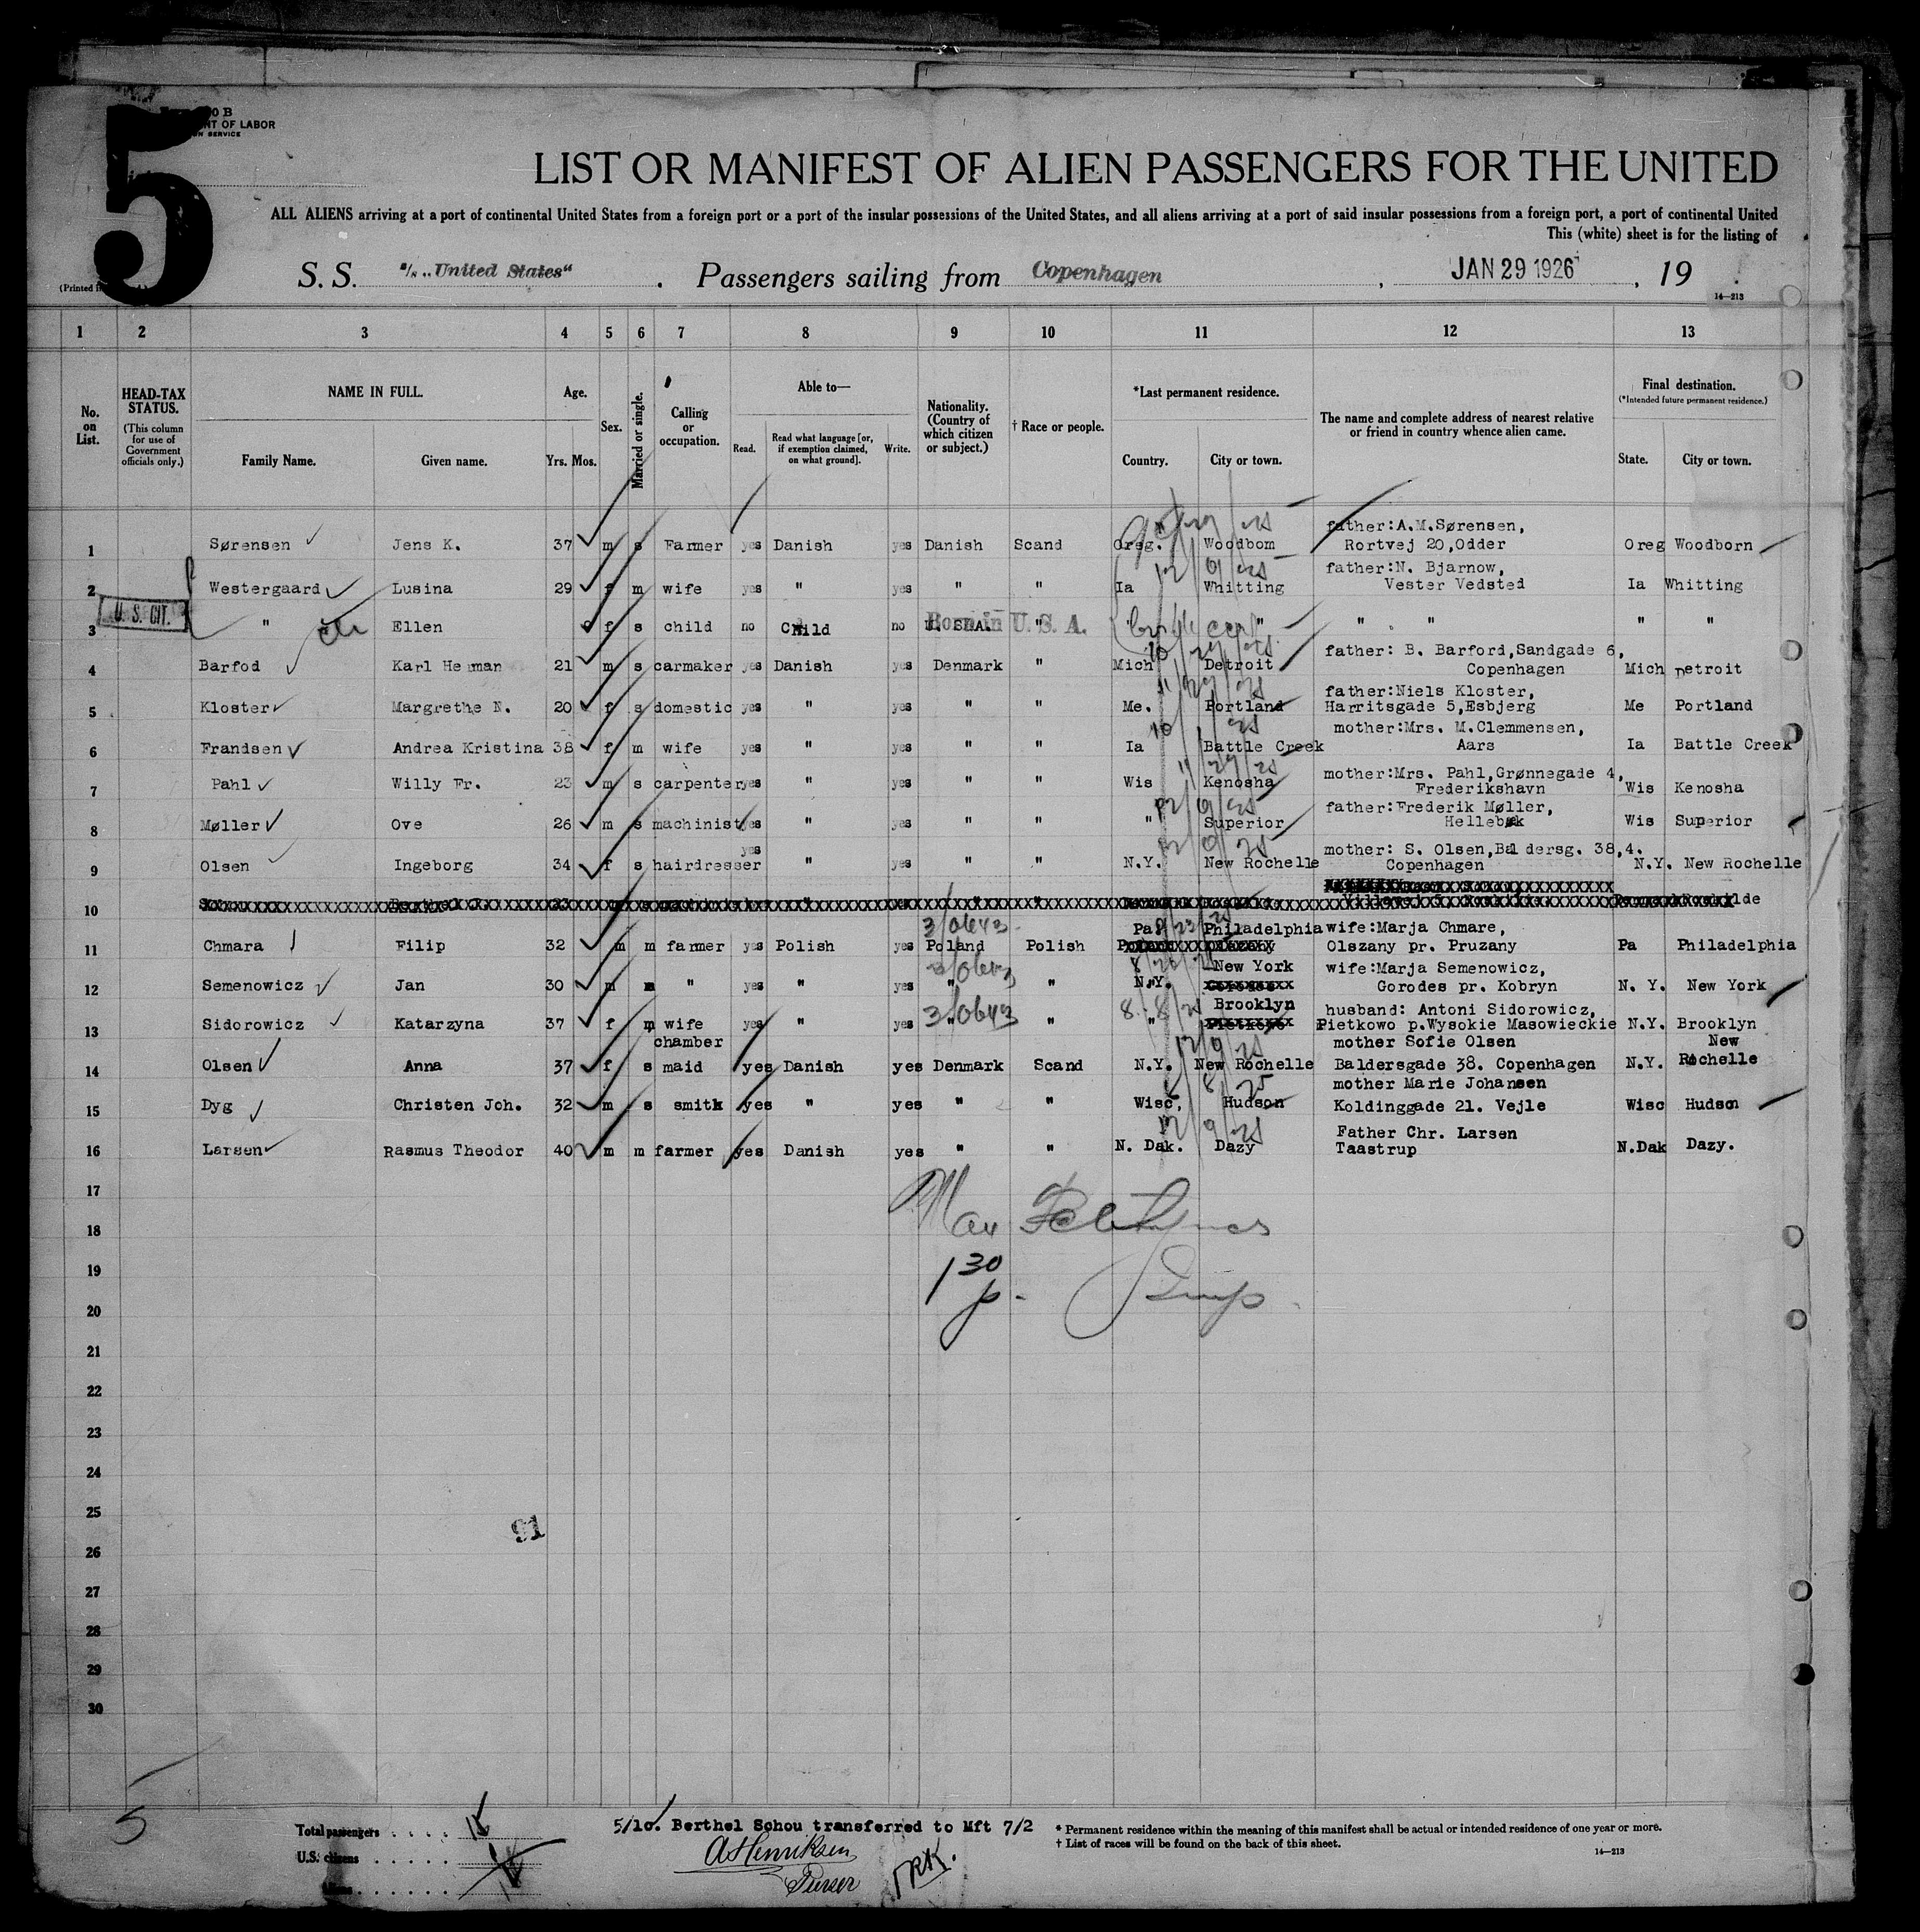 5
0 B
NT OF LABOR
ON SERVICE
LIST OR MANIFEST OF ALIEN PASSENGERS FOR THE UNITED
ALL ALIENS arriving at a port of continental United States from a foreign port or a port of the insular possessions of the United States, and all aliens arriving at a port of said insular possessions from a foreign port, a port of continental United
This (white) sheet is for the listing of
S. S. s/s „United States" . Passengers sailing from Copenhagen , JAN 29 1926 , 19
(Printed
14—213
1 2 3 4 5 6 7 8 9 10 11 12 13
No. on List.
HEAD-TAX STATUS.
(This column for use of Government officials only.)
NAME IN FULL.
Family Name. Given name.
Age.
Yrs. Mos.
Sex.
Married or single.
Calling or occupation.
Able to—
Read. Read what language [or, if exemption claimed, on what ground]. Write.
Nationality. (Country of which citizen or subject.)
† Race or people.
*Last permanent residence.
Country. City or town.
The name and complete address of nearest relative or friend in country whence alien came.
Final destination.
(*Intended future permanent residence.)
State. City or town.
father:A.M.Sørensen,
1 Sørensen Jens K. 37 m s Farmer yes Danish yes Danish Scand Oreg. Woodbom Rortvej 20,Odder Oreg Woodborn
father:N. Bjarnow,
2 Westergaard Lusina 29 f m wife yes " yes " " Ia Whitting Vester Vedsted Ia Whitting
U. S. CIT.
3 " Ellen f s child no Child no Born in U. S. A. " " " " " "
father: B. Barford,Sandgade 6,
4 Barfod Karl Herman 21 m s carmaker yes Danish yes Denmark " Mich Detroit Copenhagen Mich Detroit
father:Niels Kloster,
5 Kloster Margrethe N. 20 f s domestic yes " yes " " Me. Portland Harritsgade 5,Esbjerg Me Portland
mother:Mrs. M.Clemmensen,
6 Frandsen Andrea Kristina 38 f m wife yes " yes " " Ia Battle Creek Aars Ia Battle Creek
mother:Mrs. Pahl,Grønnegade 4,
7 Pahl Willy Fr. 23 m s carpenter yes " yes " " Wis Kenosha Frederikshavn Wis Kenosha
father:Frederik Møller,
8 Møller Ove 26 m s machinist yes " yes " " " Superior Hellebæk Wis Superior
mother: S. Olsen,Baldersg. 38,4.
9 Olsen Ingeborg 34 f s hairdresser yes " yes " " N.Y. New Rochelle Copenhagen N.Y. New Rochelle
10
3/0643 Pa Philadelphia wife:Marja Chmare,
11 Chmara Filip 32 m m farmer yes Polish yes Poland Polish Olszany pr. Pruzany Pa Philadelphia
3/0643 New York wife:Marja Semenowicz,
12 Semenowicz Jan 30 m m " yes " yes " " N.Y. Gorodes pr. Kobryn N. Y. New York
3/0643 Brooklyn husband: Antoni Sidorowicz,
13 Sidorowicz Katarzyna 37 f m wife yes " yes " " Pietkowo p.Wysokie Masowieckie N.Y. Brooklyn
chamber mother Sofie Olsen New
14 Olsen Anna 37 f s maid yes Danish yes Denmark Scand N.Y. New Rochelle Baldersgade 38. Copenhagen N.Y. Rochelle
mother Marie Johansen
15 Dyg Christen Joh. 32 m s smith yes " yes " " Wisc, Hudson Koldinggade 21. Vejle Wisc Hudson
Father Chr. Larsen
16 Larsen Rasmus Theodor 40 m m farmer yes Danish yes " " N. Dak. Dazy Taastrup N.Dak Dazy.
17
18
19 1 30
20 p.
21
22
23
24
25
91
26
27
28
29
30
5
Total passengers
U.S. citizens
5/10. Berthel Schou transferred to Mft 7/2
AHenriksen
Purser
* Permanent residence within the meaning of this manifest shall be actual or intended residence of one year or more.
† List of races will be found on the back of this sheet.
14—213